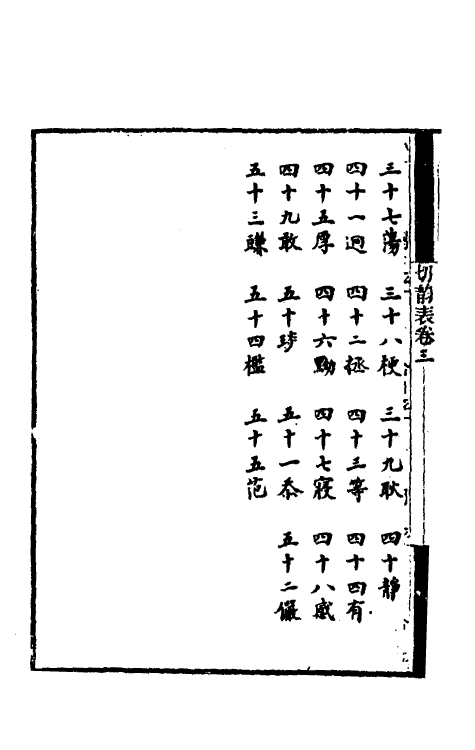 切韵表卷三
三十七蕩 三十八梗 三十九耿 四十靜
四十一迥 四十二拯 四十三等 四十四有
四十五厚 四十六黝 四十七寑 四十八感
四十九敢 五十琰 五十一忝 五十二儼
五十三豏 五十四檻 五十五范